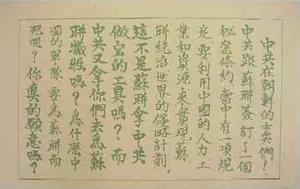 中共在朝鮮的士兵們！
中共跟蘇聯簽訂了一個
秘密條約，當中有一項規
定，要利用中國的人力工
業和資源，來實現蘇
聯統治世界的侵略計劃。
這不是蘇聯拿中共
做它的工具嗎？而
中共又拿你們去為蘇
聯犧牲嗎？為什麼中
國的軍隊，要為蘇聯而
死呢？你真的願意嗎？